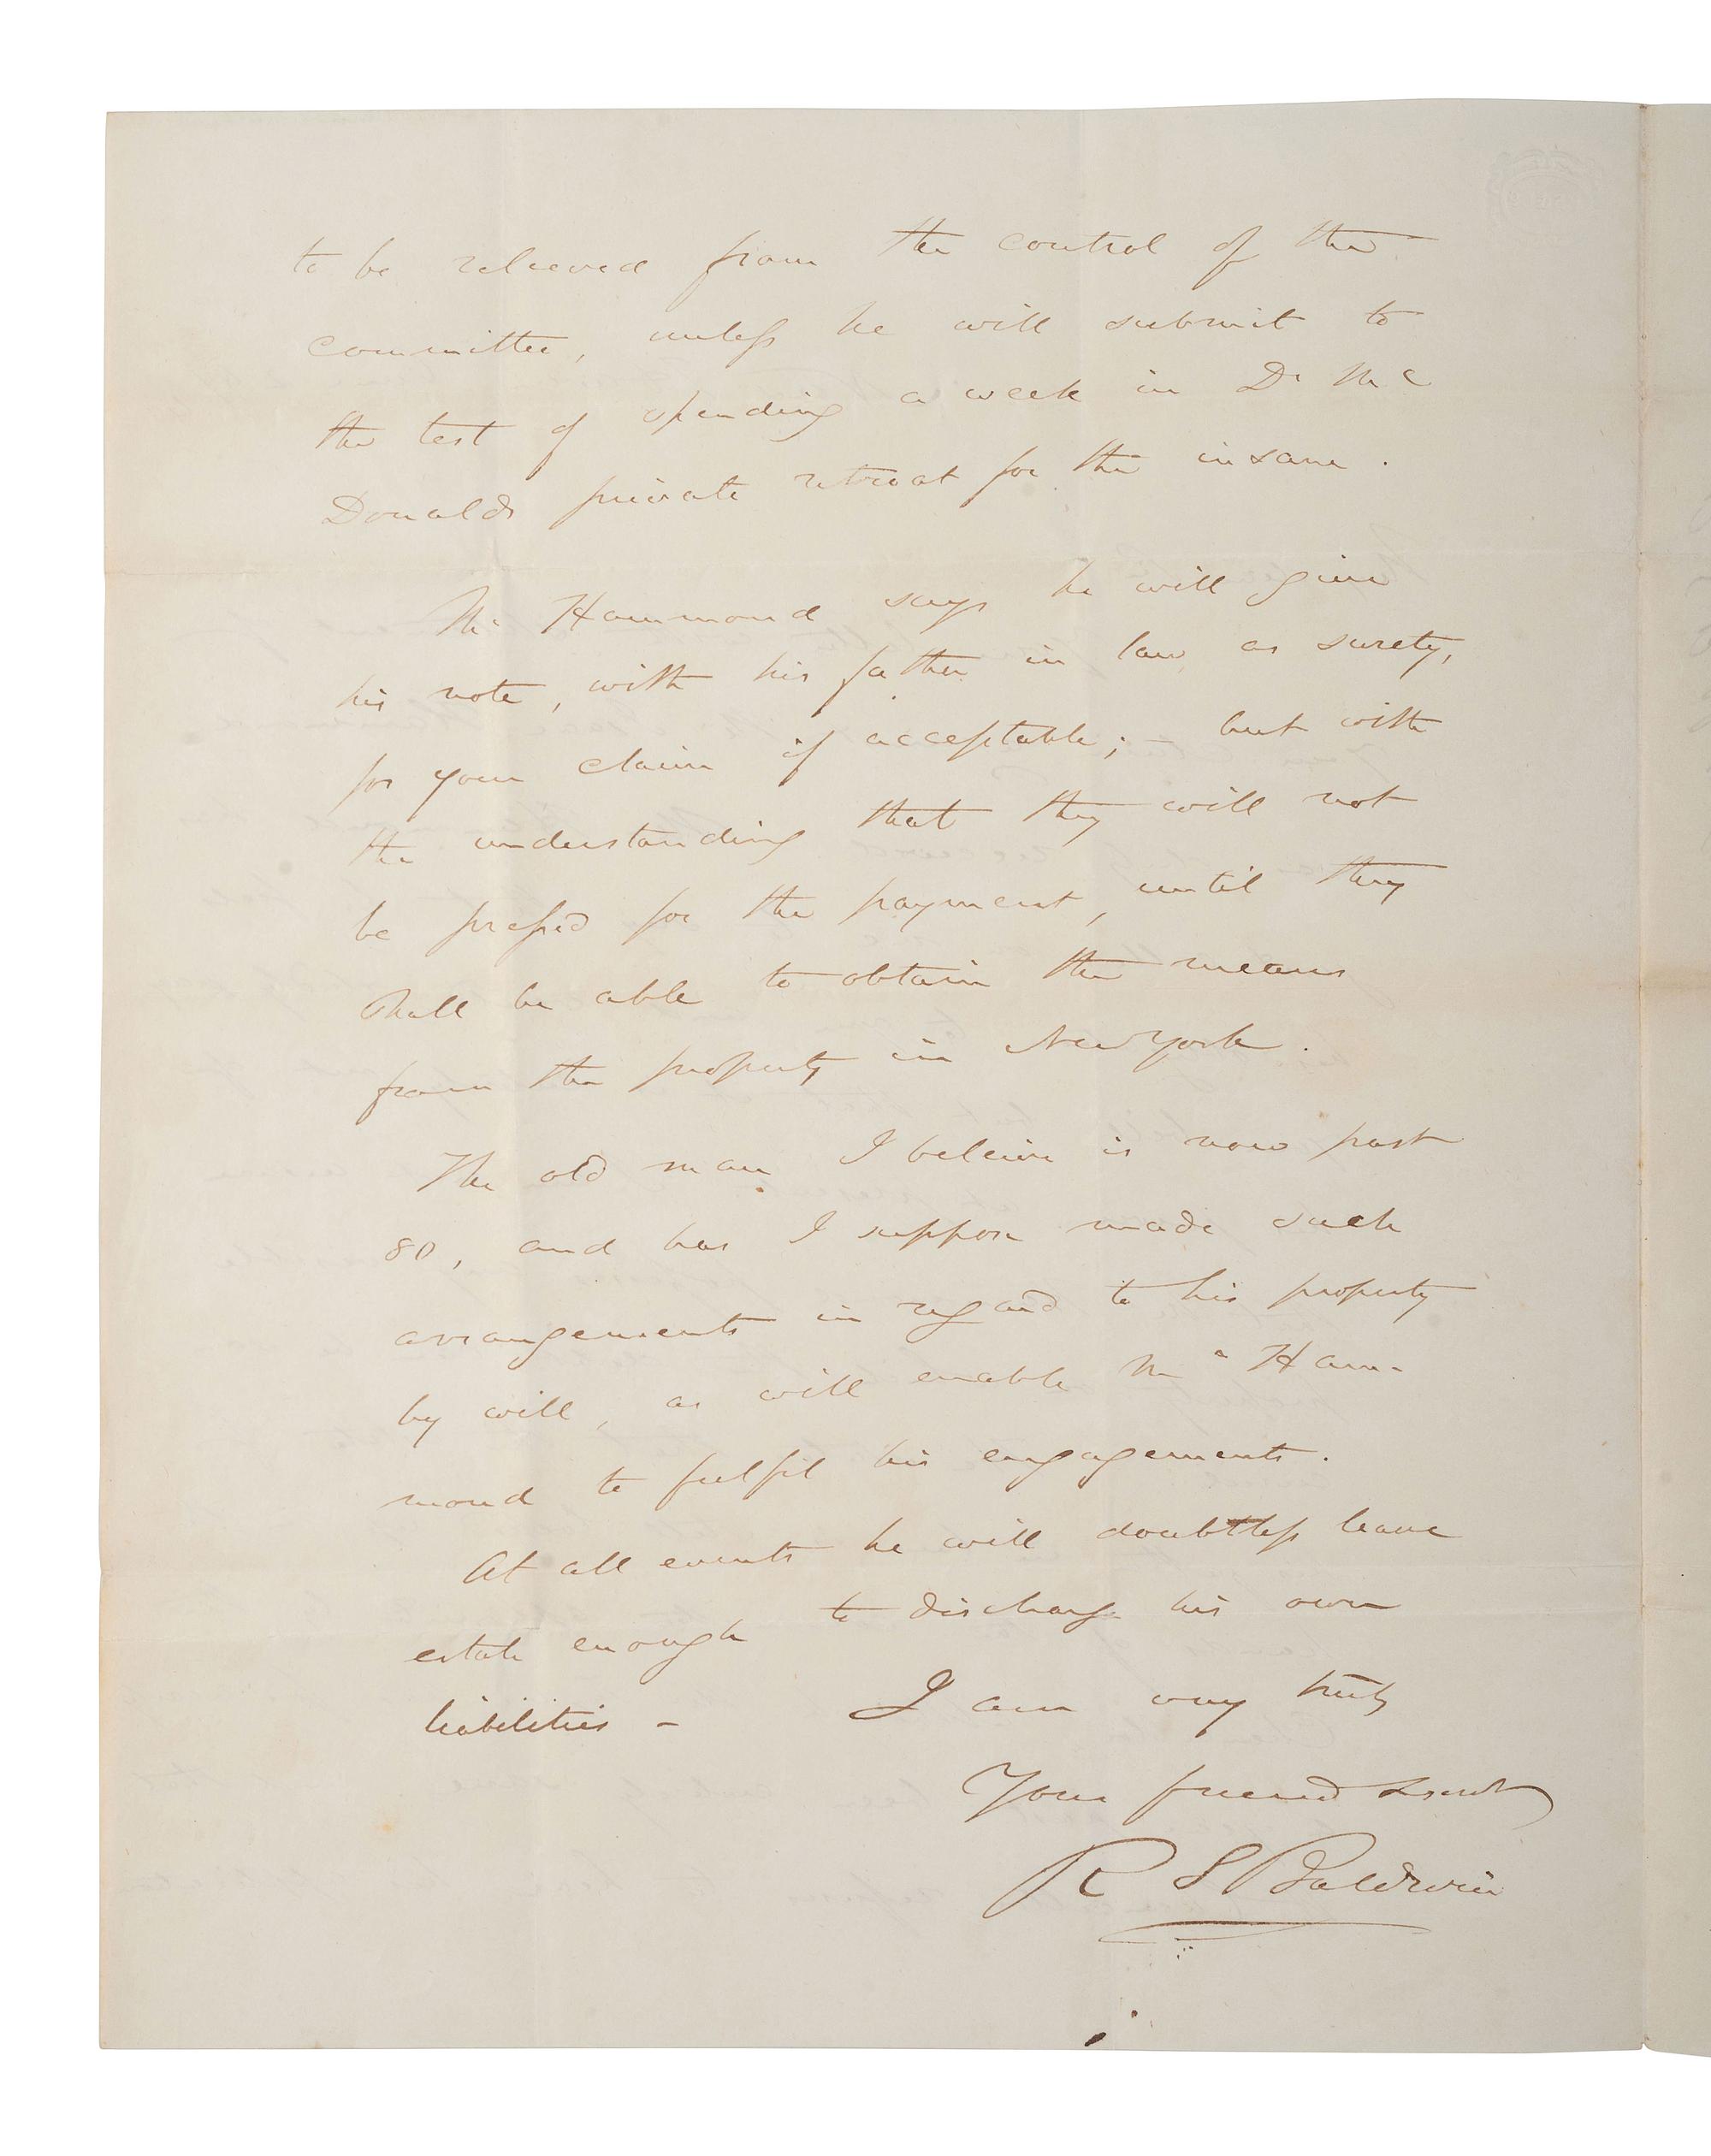 to be releived from the control of the
committee, unless he will submit to
the test of spending a week in Dr Mc
Donalds private retreat for the insane.
Mr Hammond says he will give
his note, with his father in law as surety,
for your claim if acceptable; – but with
the understanding that they will not
be press'd for the payment, until they
shall be able to obtain the means
from the property in New York.
The old man I beleive is now past
80, and has I suppose made such
arrangements in regard to his property
by will, as will enable Mr Ham-
mond to fulfil his engagements.
At all events he will doubtless leave
estate enough to discharge his own
liabilities – I am very truly
Your friend & servt
R S Baldwin